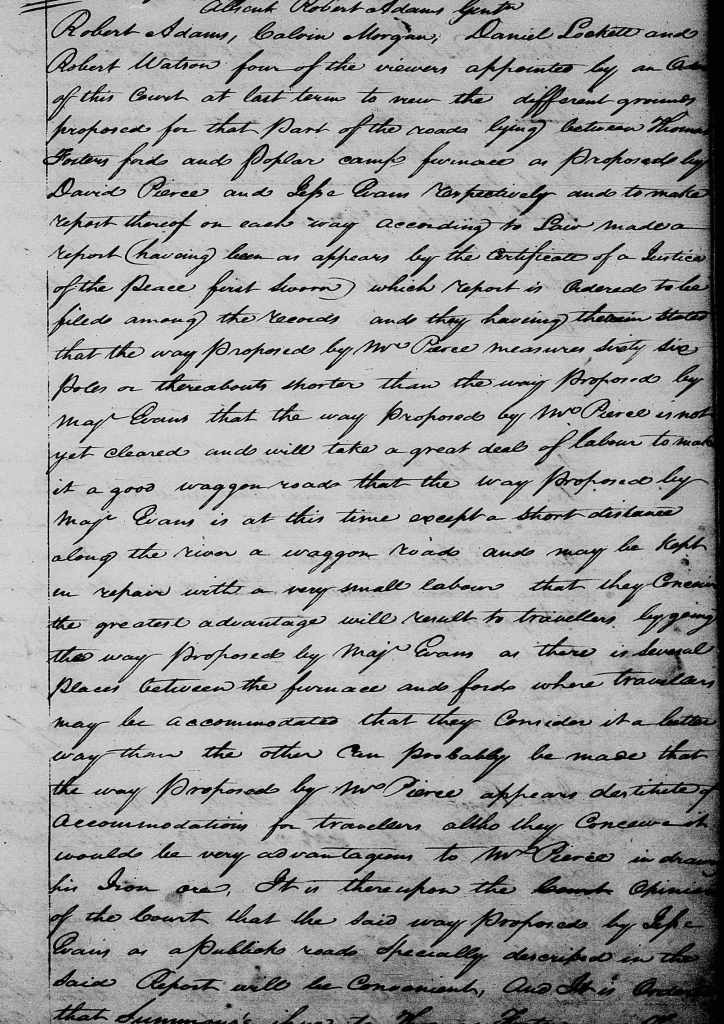 Absent Robert Adams Gent
Robert Adams, Calvin Morgan, Daniel Lockett and
Robert Watson four of the viewers appointed by an Order
of this Court at last term to view the different grounds
proposed for that Part of the roads lying between Thomas
Fosters ford and Poplar camp furnace as proposed by
David Pierce and Jesse Evans respectively and to make
report thereof on each way according to Law made a
report (having been as appears by the Certificate of a Justice
of the Peace first sworn) which report is ordered to be
filed among the records and they having therein stated
that the way proposed by Mr Pierce measures sixty six
Poles or thereabouts shorter than the way proposed by
Majr Evans that the way proposed by Mr Pierce is not
yet cleared and will take a great deal of labour to make
it a good waggon road that the way proposed by
Majr Evans is at this time except a short distance
along the river a waggon road and may be kept
in repair with a very small labour that they Conceive
the greatest advantage will result to travellers by going
the way proposed by Majr Evans as there is several
Places between the furnace and ford where travellers
may be accommodated that they Consider it a better
way than the other Can probably be made that
the way proposed by Mr Pierce appears destitute of
accommodations for travellers altho they Conceive it
would be very advantageous to Mr Pierce in drawing
his Iron ore, It is thereupon the Court Opinion
of the Court that the said way proposed by Jesse
Evans as a Publick road specially described in the
said Report will be Convenient, And It is Ordered
that Summons's issue to